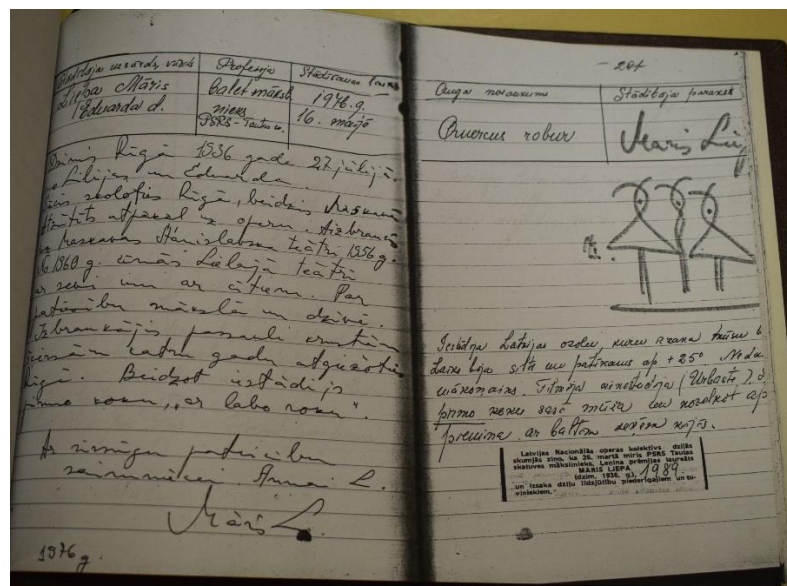 Stādītāja uzvārds, vārds
Profesija
Stādīšanas laiks
Liepa Māris
Eduarda d.
balet māksl.
nieks
PSRS - Tautas
1976. g.
16. maijā
Dzimis Rīgā 1936 gada 27 jūlijā
Lilijas un Eduarda
skolojies Rīgā, beidzis Maskavā
atpakaļ uz operu. Aizbraucis
uz Maskavas Staņislavska teātri 1956 g.
No 1960 g. Lielajā teātrī
ar sevi un ar citiem. Par
patiesību mākslā un dzīvē.
Izbraukājis pasauli krustām
šķērsām katru gadu atgriezties
Rīgā. Beidzot iestādījis
pirmo koku, "ar labo roku".
Ar sirsnīgu pateicību
saimniecei Annai L.
Māris L.
1976 g.
- 207
Auga nosaukums
Stādītāja paraksts
Quercus robur
Maris Liepa
Iestādīja Latvijas ozolu, kuru
Laiks bija silts un patīkams ap +25°
mākoņains. (Urbasts),
pirmo koku savā mūžā un
piemiņa ar baltām
Latvijas Nacionālās operas kolektīvs dziļās
skumjās ziņo, ka 26. martā miris PSRS Tautas
skatuves mākslinieks, Ļeņina prēmijas laureāts
MĀRIS LIEPA
(dzim. 1936. g.), 1989.
un izsaka dziļu līdzjūtību piederīgajiem un tu-
viniekiem.